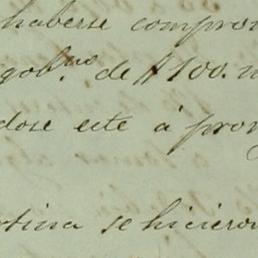 haberse compro
gob.no de $100. 
dose este á pron
rtina se hicieron